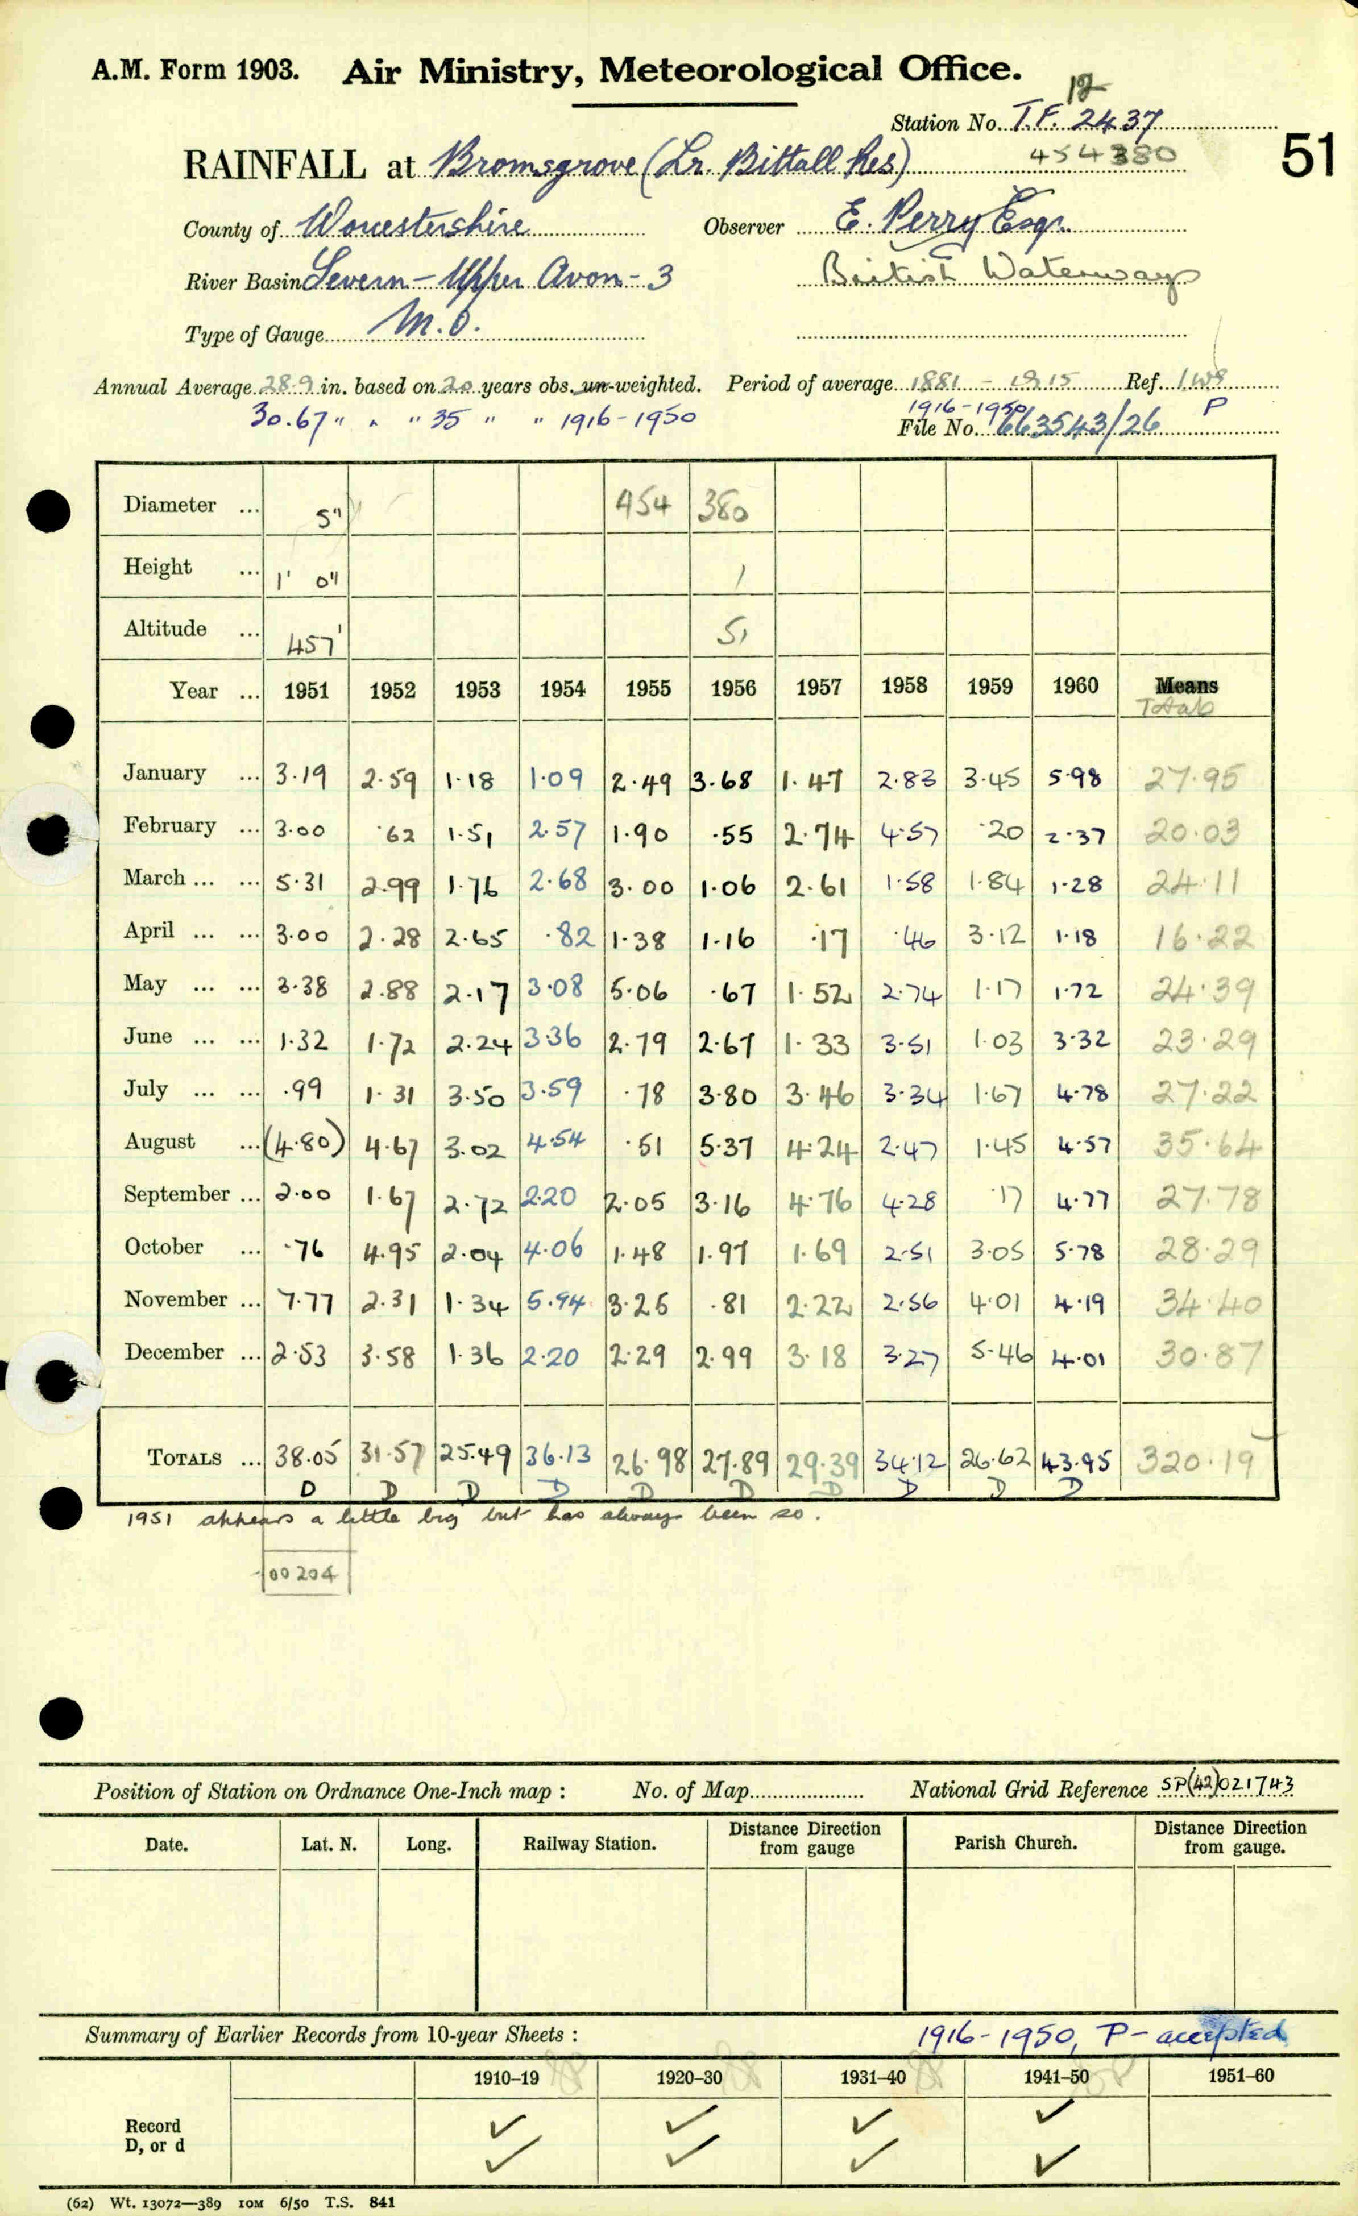 A.M. Form 1903. Air Ministry, Meteorological Office.
12
Station No. T.F. 2437
454380
51
RAINFALL at Bromsgrove (Lr. Bittall Res)
County of Worcestershire Observer E. Perry Esqr.
River Basin Severn - Upper Avon - 3 British Waterways
Type of Gauge M.O.
Annual Average 28.9 in. based on 20 years obs. un-weighted. Period of average 1881 - 1915 Ref.
30.67 " " " 35 " " 1916-1950 1916-1950 P
File No. 663543/26
Diameter ... 5" 454 380
Height ... 1' 0" 1
Altitude ... 457' 51
Year ... 1951 1952 1953 1954 1955 1956 1957 1958 1959 1960 Means
Totals
January ... 3.19 2.59 1.18 1.09 2.49 3.68 1.47 2.83 3.45 5.98 27.95
February ... 3.00 .62 1.51 2.57 1.90 .55 2.74 4.57 .20 2.37 20.03
March ... ... 5.31 2.99 1.76 2.68 3.00 1.06 2.61 1.58 1.84 1.28 24.11
April ... ... 3.00 2.28 2.65 .82 1.38 1.16 .17 .46 3.12 1.18 16.22
May ... ... 3.38 2.88 2.17 3.08 5.06 .67 1.52 2.74 1.17 1.72 24.39
June ... ... 1.32 1.72 2.24 3.36 2.79 2.67 1.33 3.51 1.03 3.32 23.29
July ... ... .99 1.31 3.50 3.59 .78 3.80 3.46 3.34 1.67 4.78 27.22
August ... (4.80) 4.67 3.02 4.54 .51 5.37 4.24 2.47 1.45 4.57 35.64
September ... 2.00 1.67 2.72 2.20 2.05 3.16 4.76 4.28 .17 4.77 27.78
October ... .76 4.95 2.04 4.06 1.48 1.97 1.69 2.51 3.05 5.78 28.29
November ... 7.77 2.31 1.34 5.94 3.25 .81 2.22 2.56 4.01 4.19 34.40
December ... 2.53 3.58 1.36 2.20 2.29 2.99 3.18 3.27 5.46 4.01 30.87
TOTALS ... 38.05 31.57 25.49 36.13 26.98 27.89 29.39 34.12 26.62 43.95 320.19
D D D D D D D D D D
1951 appears a little big but has always been so.
00204
Position of Station on Ordnance One-Inch map : No. of Map National Grid Reference SP(42)021743
Date. Lat. N. Long. Railway Station. Distance from Direction gauge Parish Church. Distance from Direction gauge.
Summary of Earlier Records from 10-year Sheets : 1916-1950, P- accepted
1910–19 1920–30 1931–40 1941–50 1951–60
Record ✓ ✓ ✓ ✓
D, or d ✓ ✓ ✓ ✓
(62) Wt. 13072—389 10M 6/50 T.S. 841